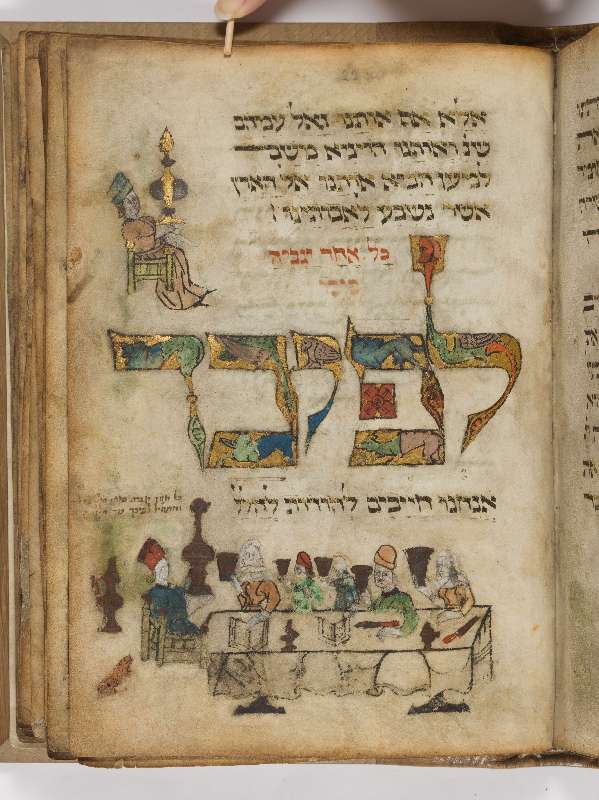 אלא אף אותנו גאל עמהם
שנ ואותנו הוציא משם
למען הביא אותנו אל הארץ
אשר נשבע לאבותינו
כל אחד יגביה
כוסו
לפיכך
אנחנו חייבים להודות להלל